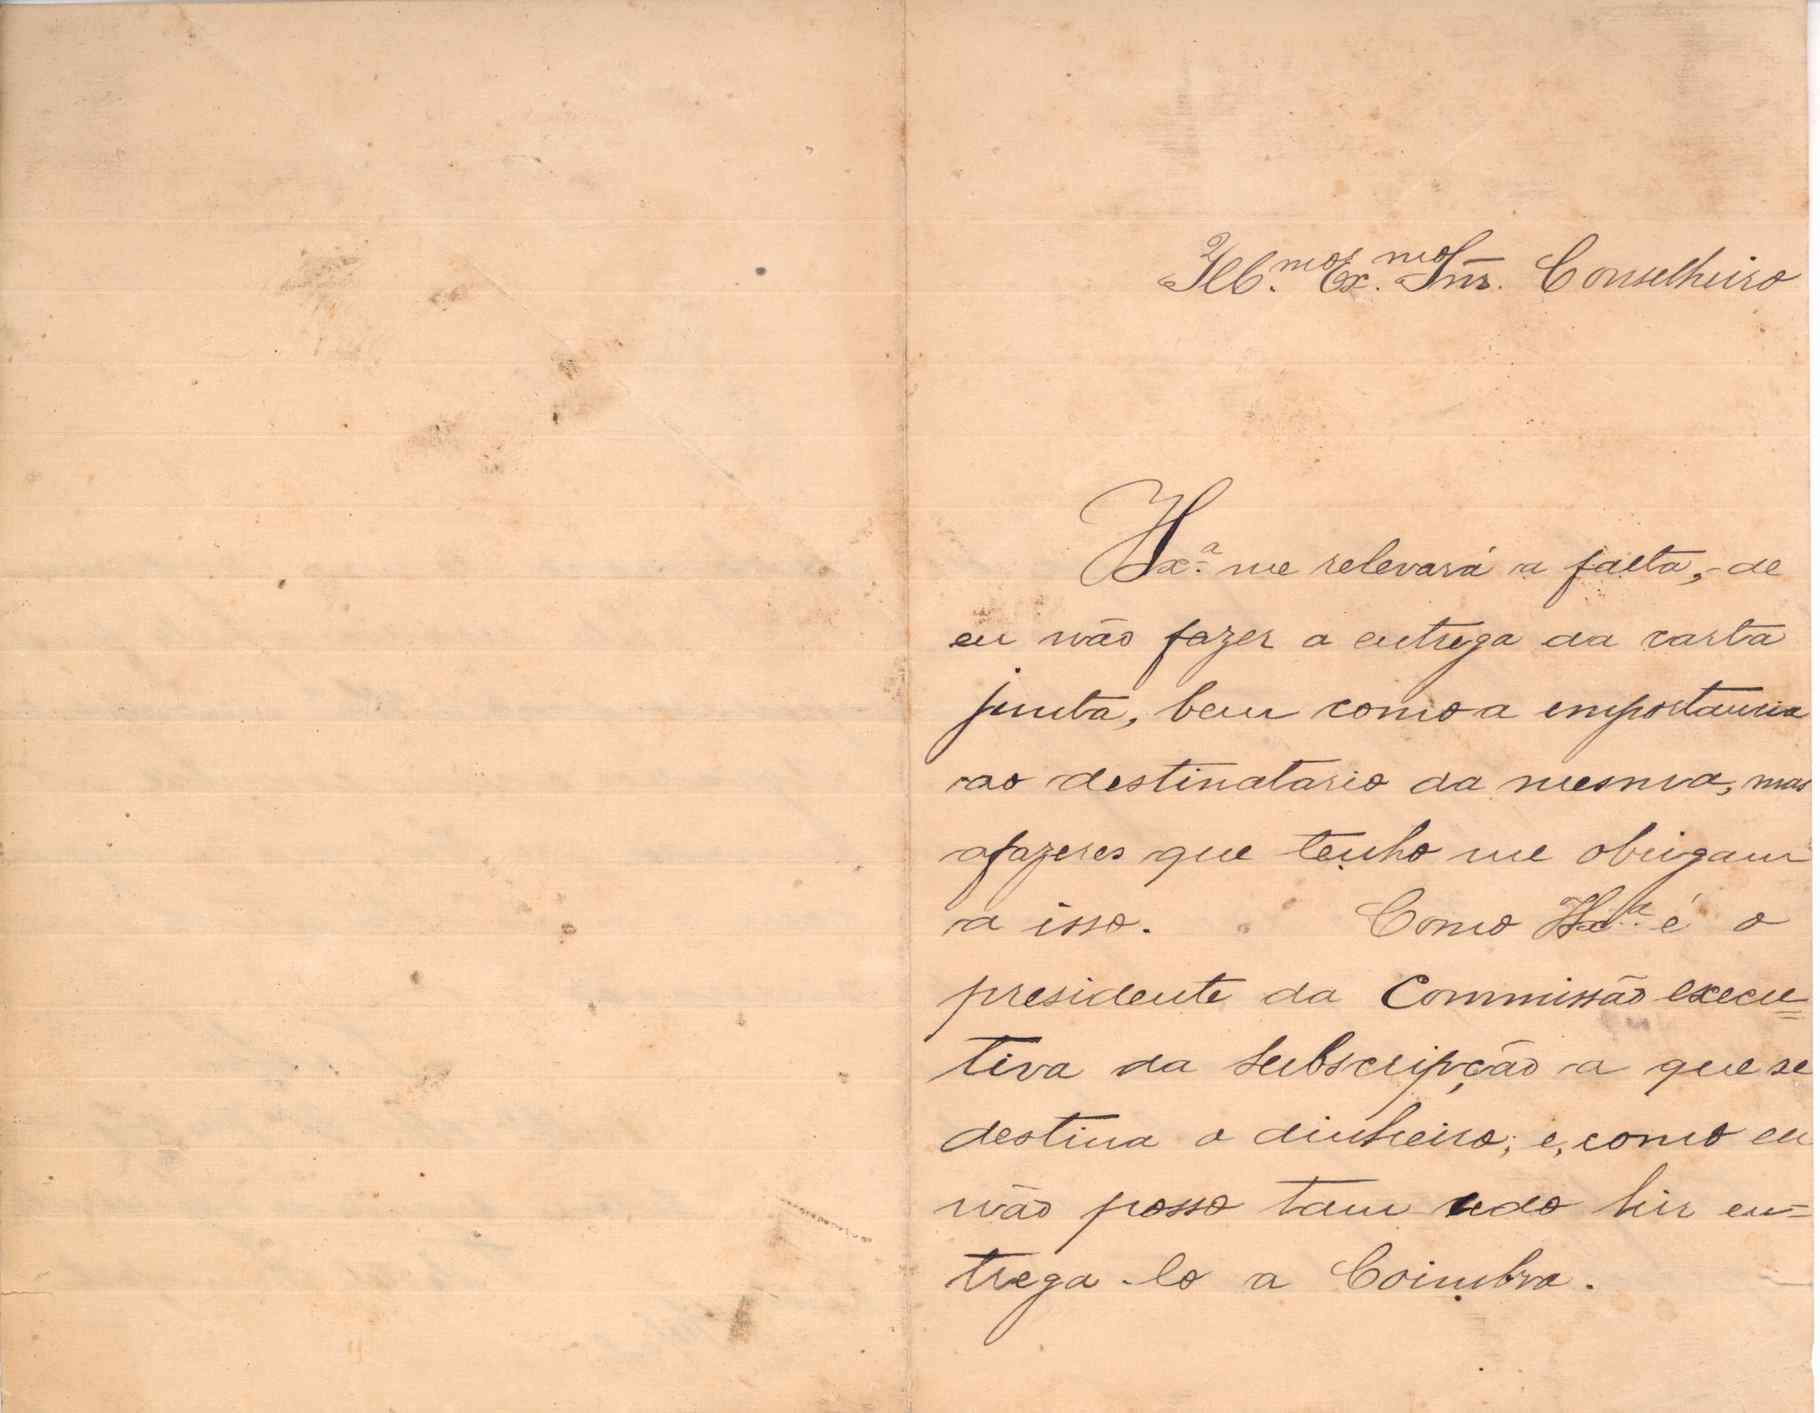 Ill.mo Ex.mo Snr. Conselheiro
V Ex.ª me relevará a falta, de
eu não fazer a entrega da carta
junta, bem como a emportancia
ao destinatario da mesma, mas
afazeres que tenho me obrigam
a isso. Como V Ex.ª é o
presidente da Commissão execu=
tiva da subscripção a que se
destina o dinheiro; e, como eu
não posso tam cedo hir en=
trega-lo a Coimbra.